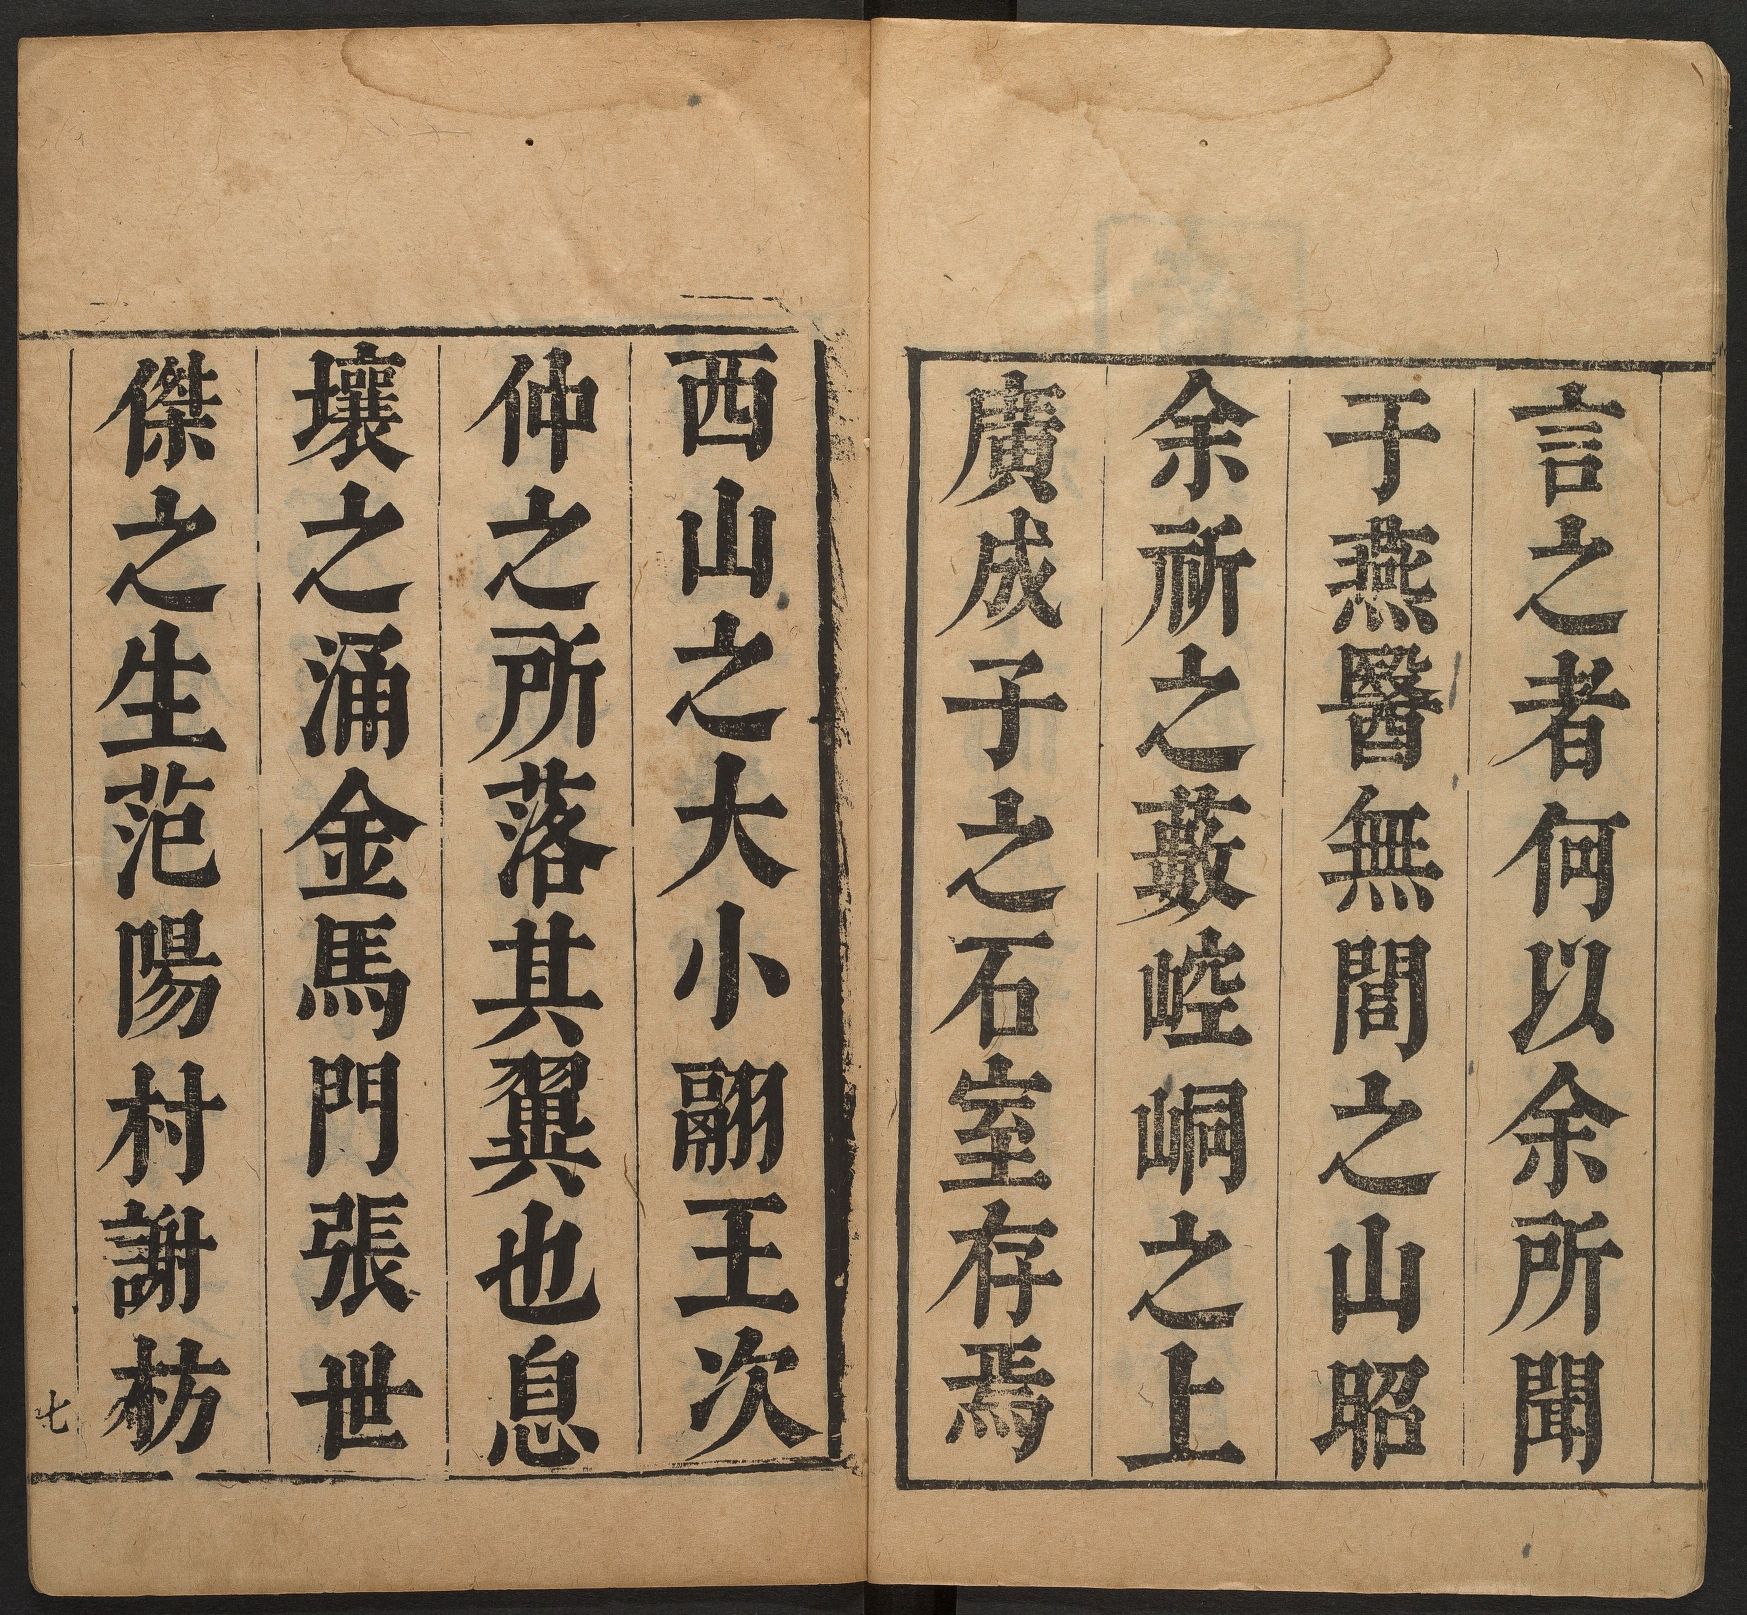 言之者何以余所聞
于燕醫無閭之山昭
余祈之藪崆峒之上
廣成子之石室存焉
西山之大小翮王次
仲之所落其翼也息
壤之涌金馬門張世
傑之生范陽村謝枋
七